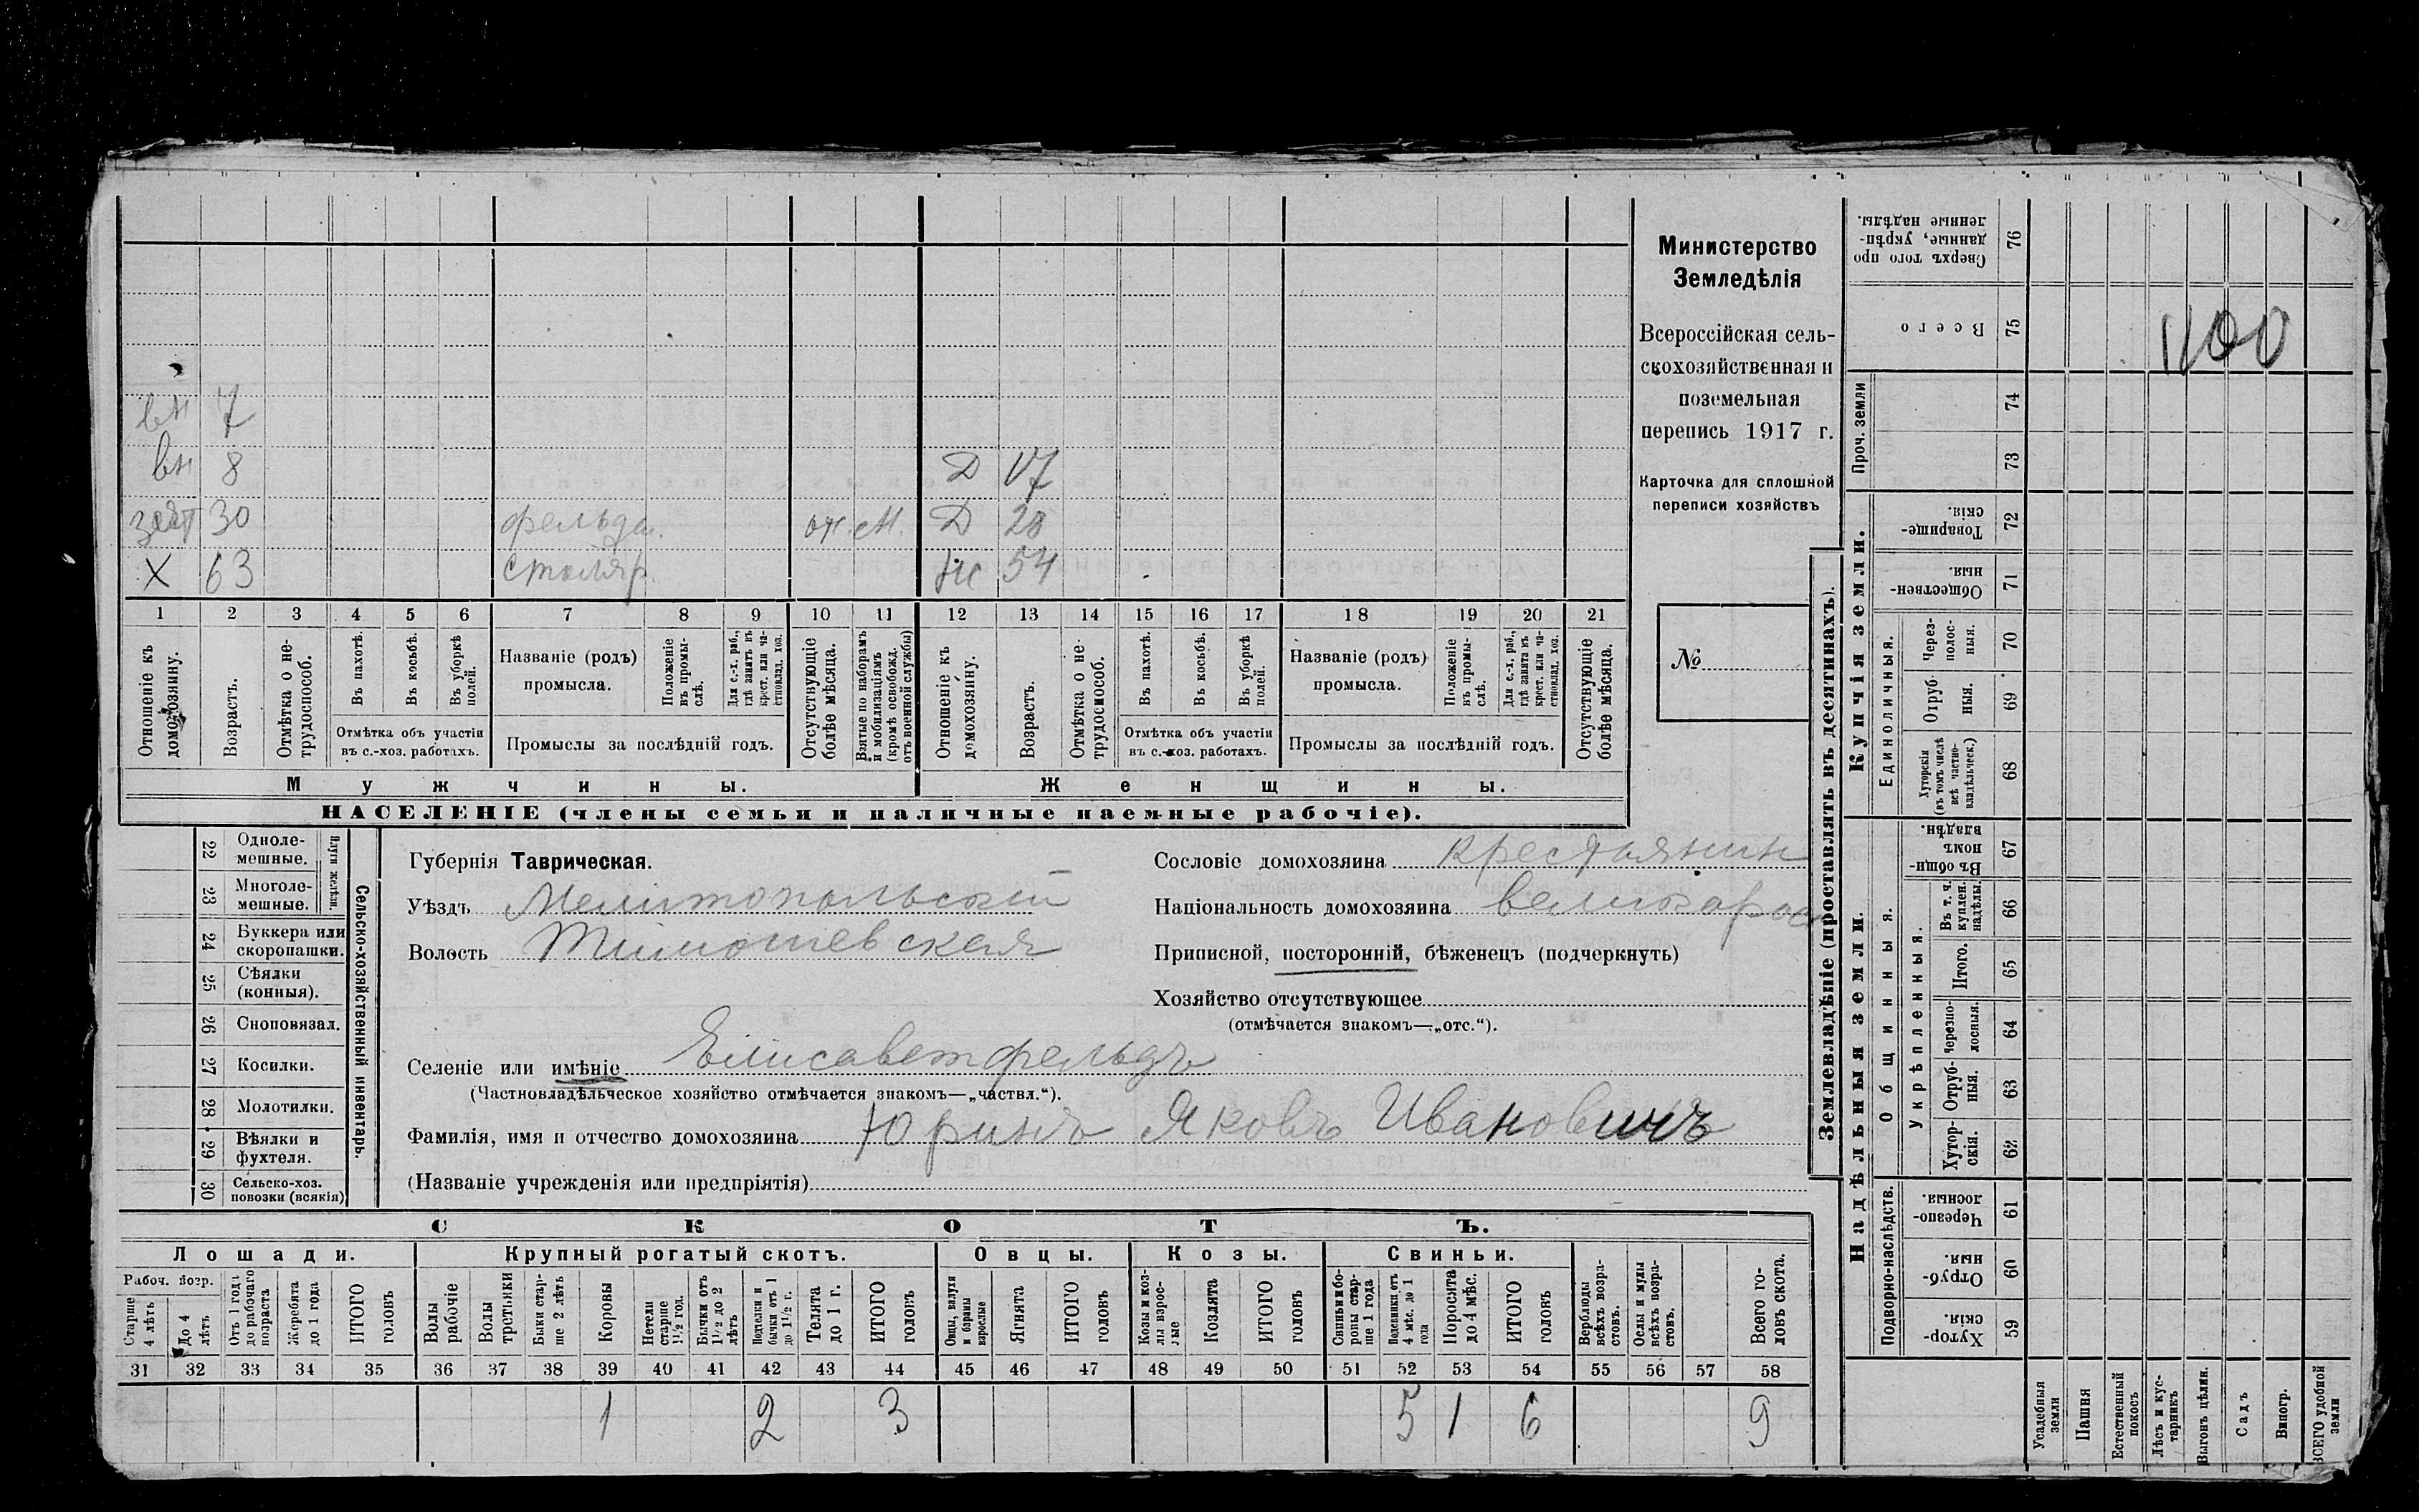 вн 7
вн 8 Д 17
зят 30 фельдш. от. М. Д 28
Х 63 столяр. Ж 54
1 2 3 4 5 6 7 8 9 10 11 12 13 14 15 16 17 18 19 20 21
Отношеніе къ домохозяину.
Возрастъ.
Отмѣтка о нетрудоспособ.
Въ пахотѣ.
Въ косьбѣ.
Въ уборкѣ полей.
Отмѣтка объ участіи
въ с.-хоз. работахъ.
Названіе (родъ)
промысла.
Положеніе въ промыслѣ.
Для с.-х. раб., гдѣ занятъ въ крест. или частновлад. хоз.
Промыслы за послѣдній годъ.
Отсутствующіе болѣе мѣсяца.
Взятые по наборамъ и мобилизаціямъ (кромѣ освобожд. отъ военной службы)
Отношеніе къ домохозяину.
Возрастъ.
Отмѣтка о нетрудоспособ.
Въ пахотѣ.
Въ косьбѣ.
Въ уборкѣ полей.
Отмѣтка объ участіи
въ с.-хоз. работахъ.
Названіе (родъ)
промысла.
Положеніе въ промыслѣ.
Для с.-х. раб., гдѣ занята въ крест. или частновлад. хоз.
Промыслы за послѣдній годъ.
Отсутствующіе болѣе мѣсяца.
Мужчины. Женщины.
НАСЕЛЕНІЕ (члены семьи и наличные наемные рабочіе).
Министерство
Земледѣлія
Всероссійская сель-
скохозяйственная и
поземельная
перепись 1917 г.
Карточка для сплошной
переписи хозяйствъ
№
22 Одноле-
мешные.
23 Многоле-
мешные.
Плуги желѣзн.
24 Буккера или
скоропашки.
25 Сѣялки
(конныя).
26 Сноповязал.
27 Косилки.
28 Молотилки.
29 Вѣялки и
фухтеля.
30 Сельско-хоз.
повозки (всякія)
Сельско-хозяйственный инвентарь.
Губернія Таврическая.
Уѣздъ Мелитопольскій
Волость Тимошевская
Сословіе домохозяина крестьянин
Національность домохозяина великорос
Приписной, посторонній, бѣженецъ (подчеркнуть)
Хозяйство отсутствующее
(отмѣчается знакомъ—„отс.“).
Селеніе или имѣніе Елисаветфельдъ
(Частновладѣльческое хозяйство отмѣчается знакомъ—„частвл.“).
Фамилія, имя и отчество домохозяина Юринъ Яковъ Ивановичъ
(Названіе учрежденія или предпріятія)
СКОТЪ.
Лошади. Крупный рогатый скотъ. Овцы. Козы. Свиньи.
Рабоч. возр.
Старше 4 лѣтъ
До 4 лѣтъ
Отъ 1 года до рабочаго возраста
Жеребята до 1 года
ИТОГО головъ
Волы рабочіе
Волы третьяки
Быки старше 2 лѣтъ
Коровы
Нетели старше 1½ год.
Бычки отъ 1½ до 2 лѣтъ
Подтелки и бычки отъ 1 до 1½ г.
Телята до 1 г.
ИТОГО головъ
Овцы, валухи и бараны взрослые
Ягнята
ИТОГО головъ
Козы и козлы взрослые
Козлята
ИТОГО головъ
Свиньи и боровы старше 1 года
Подсвинки отъ 4 мѣс. до 1 года
Поросята до 4 мѣс.
ИТОГО головъ
Верблюды всѣхъ возрастовъ.
Ослы и мулы всѣхъ возрастовъ.
Всего головъ скота.
31 32 33 34 35 36 37 38 39 40 41 42 43 44 45 46 47 48 49 50 51 52 53 54 55 56 57 58
1 2 3 5 1 6 9
Землевладѣніе (проставлять въ десятинахъ).
Надѣльныя земли.
Купчія земли.
Проч. земли
Подворно-наслѣдств.
Общинныя.
Укрѣпленныя.
Единоличныя.
76 Сверхъ того проданные, укрѣпленные надѣлы.
75 Всего
1100
74
73
72 Товарищескія.
71 Общественныя.
70 Черезполосныя.
69 Отрубныя.
68 Хуторскія (въ томъ числѣ всѣ частновладѣльческ.)
67 Въ общинномъ владѣн.
66 Въ т. ч. куплен. надѣлы.
65 Итого.
64 Черезполосныя
63 Отрубныя.
62 Хуторскія.
61 Черезполосныя.
60 Отрубныя.
59 Хуторскія
Усадебныя земли
Пашня
Естественный покосъ
Лѣсъ и кустарникъ
Выгонъ цѣлин.
Садъ
Виногр.
ВСЕГО удобной земли